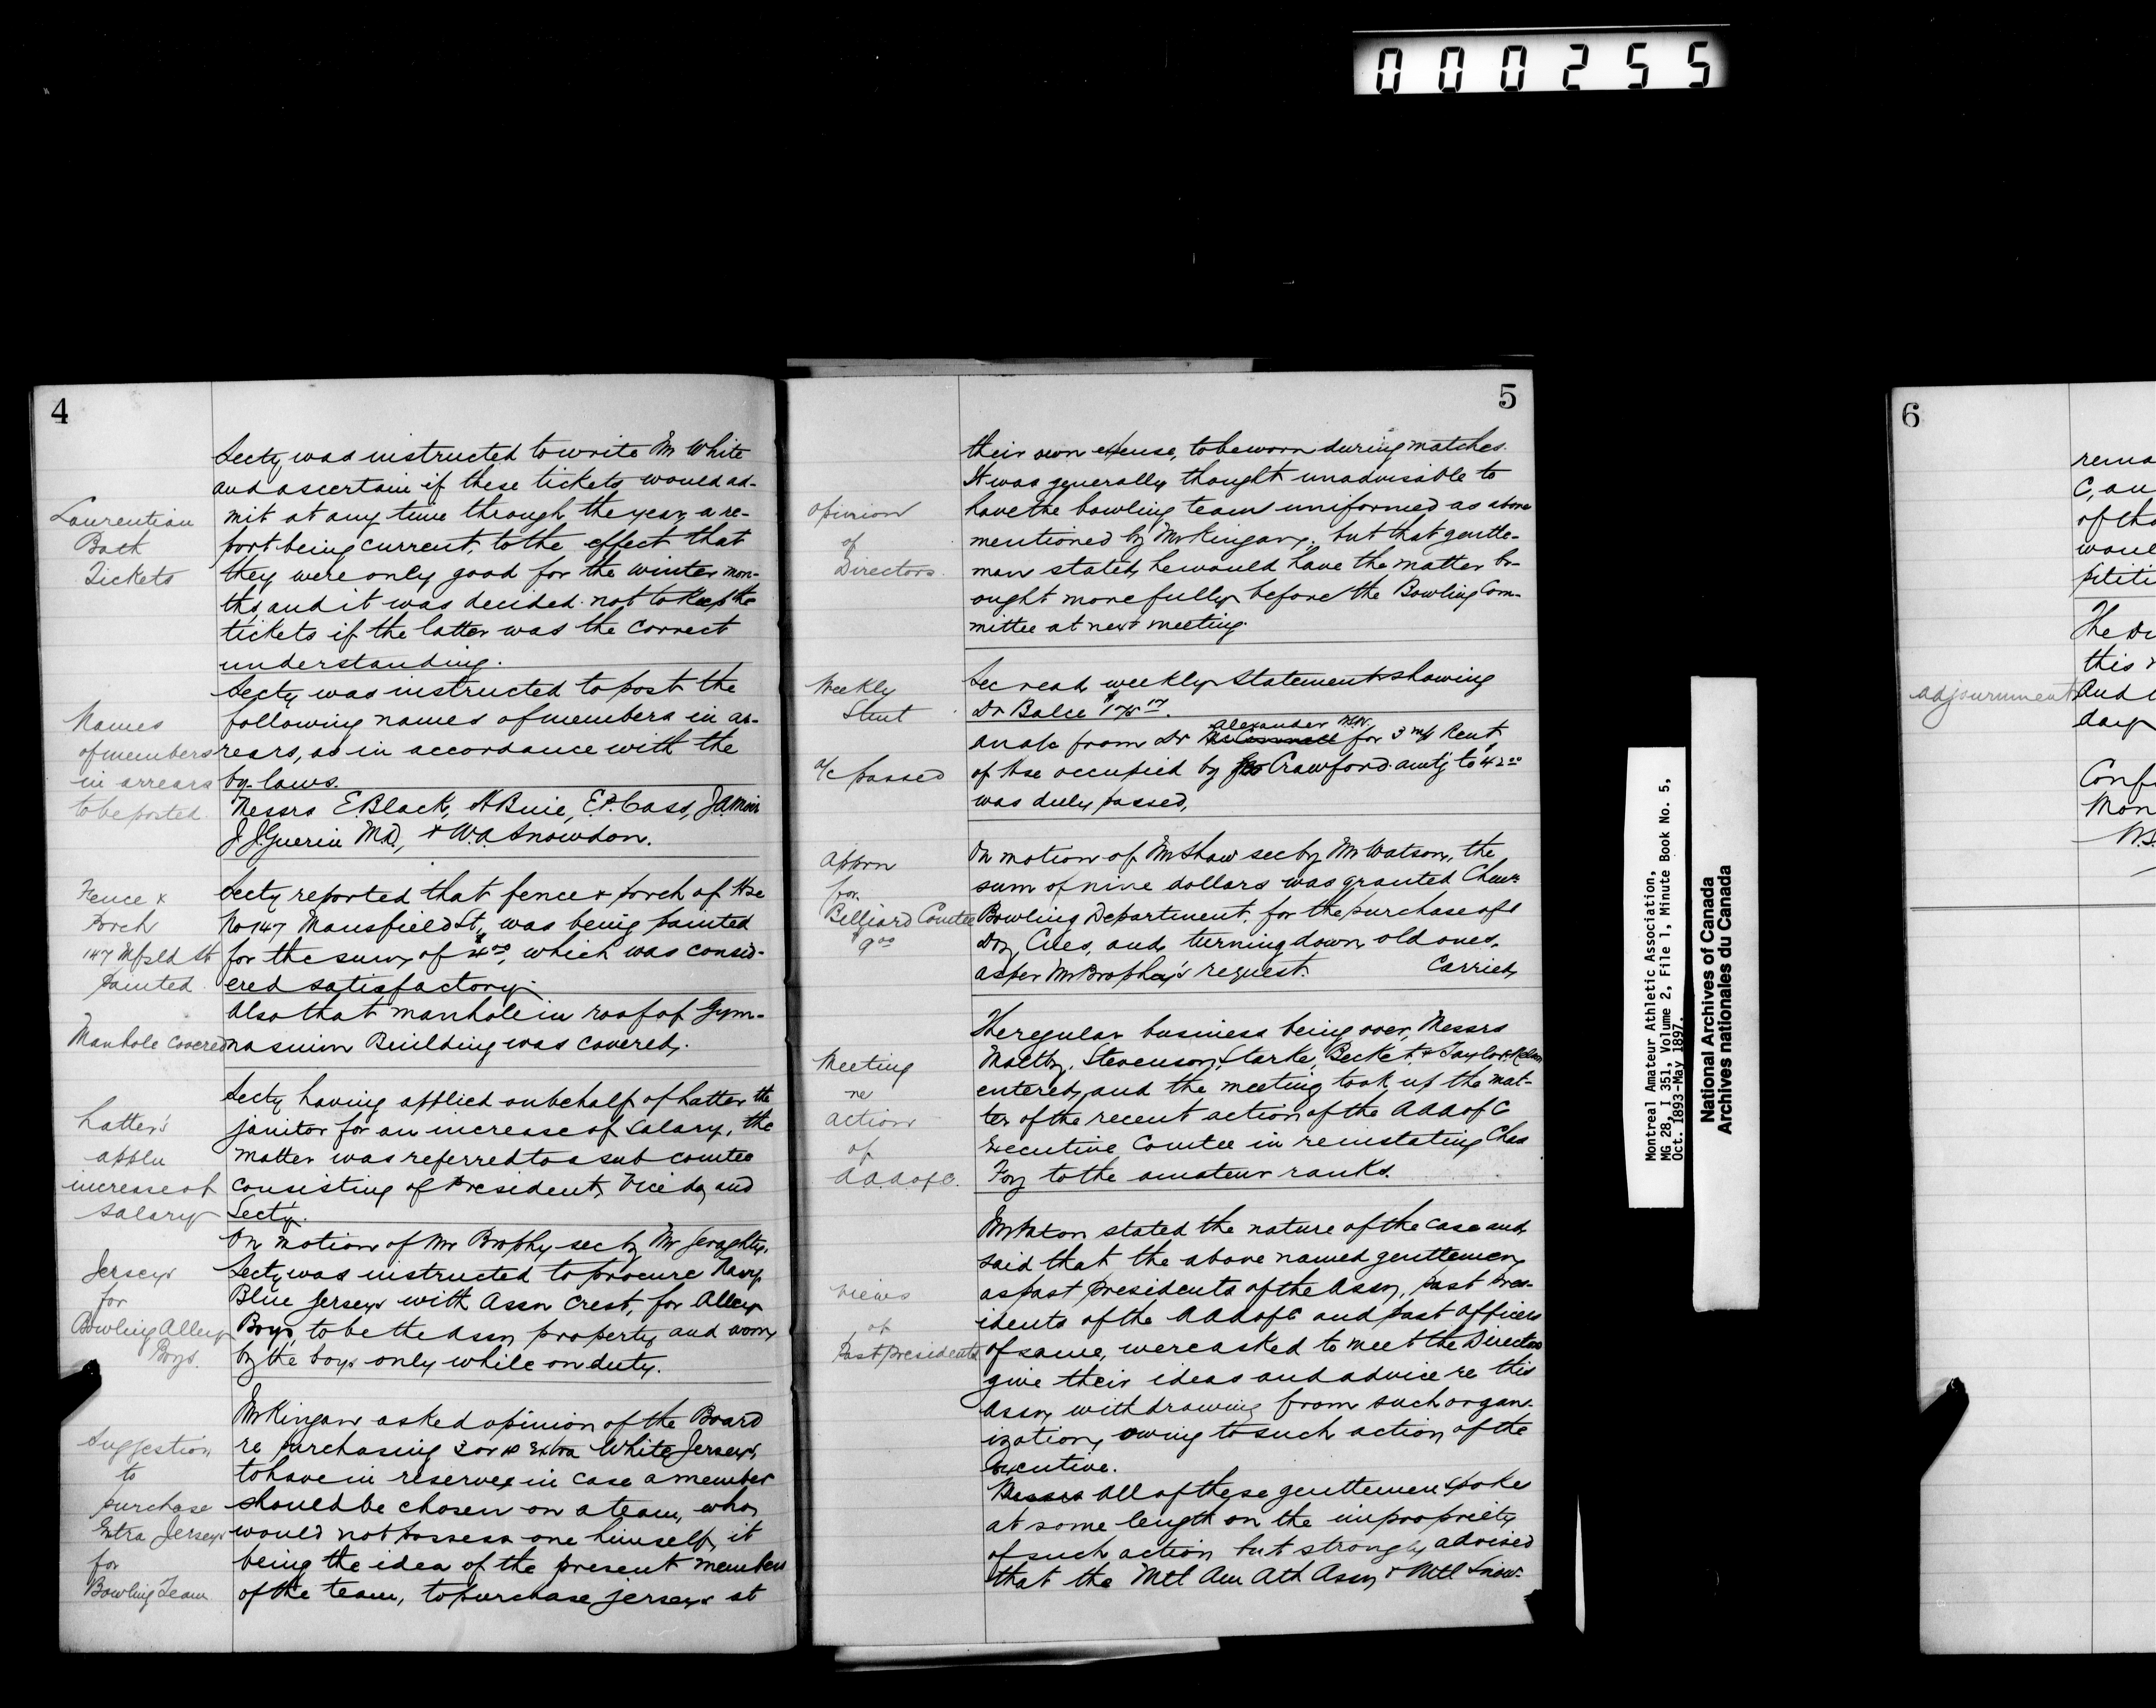 000255
4
Secty was instructed to write Mr White
and ascertain if these tickets would ad-
Laurentian
Bath
Tickets
mit at any time through the year, a re-
port being current, to the effect that
they were only good for the winter mon-
ths, and it was decided not to keep the
tickets if the latter was the correct
understanding.
Secty was instructed to post the
Names
of members
in arrears
to be posted
following names of members in ar-
rears, as in accordance with the
by-laws.
Messrs E. Black, H Buie, E.P. Cass, J.A. Moir
J J. Guerin M.D., & W.A. Snowdon.
Fence &
Porch
147 Mfsld St
painted
Secty reported that fence & porch of Hse
No 147 Mansfield St, was being painted
for the sum of $4.00, which was consid-
ered satisfactory.
Also that manhole in roof of Gym-
Manhole covered
nasium Building was covered.
Hatter's
appln
increase of
salary
Secty having applied on behalf of Hatter the
janitor for an increase of salary, the
matter was referred to a sub comtee
consisting of President, Vice do, and
Secty.
On motion of Mr Brophy sec by Mr Geraghty,
Jerseys
for
Bowling Alley
Boys.
Secty was instructed to procure Navy
Blue Jerseys with Assn Crest, for Alley
Boys, to be the Assn property, and worn
by the boys only while on duty.
Suggestion
to
purchase
Extra Jerseys
for
Bowling Team
Mr Kingan asked opinion of the Board
re purchasing 3 or extra White Jerseys,
to have in reserve, in case a member
should be chosen on a team, who
would not possess one himself, it
being the idea of the present members
of the team, to purchase jerseys at
5
their own expense, to be worn during matches.
It was generally thought unadvisable to
opinion
of
Directors.
have the bowling team uniformed as above
mentioned by Mr Kingan; but that gentle-
man stated he would have the matter br-
ought more fully before the Bowling Com-
mittee at next meeting.
Weekly
Stmt
Sec read weekly statement showing
Dr Balce $175.17.
a/c passed
an a/c from Dr Alexander for 3 mth Rent
of Hse occupied by Crawford amtg to 42.00
was duly passed.
Apprn
for
Billiard Comtee
$9.00
On motion of Mr Shaw sec by Mr Watson, the
sum of nine dollars was granted Chmn
Bowling Department, for the purchase of 1
Doz Cues, and turning down old ones,
as per Mr Brophy's request. Carried
Meeting
re
action
of
A.A.A. of C.
The regular business being over, Messrs
Maltby, Stevenson, Starke, Becket & Taylor & Nelson
entered, and the meeting took up the mat-
ter of the recent action of the AAA of C
Executive Comtee in reinstating Chas
Foy to the amateur ranks.
views
of
Past Presidents
Mr Paton stated the nature of the case and
said that the above named gentlemen
as past presidents of the Assn, past pres-
idents of the AAA of C and past officers
of same, were asked to meet the Directors
give their ideas and advice re this
Assn withdrawing from such organ-
ization, owing to such action of the
executive.
Messrs All of these gentlemen spoke
at some length on the impropriety
of such action but strongly advised
that the Mtl Am Ath Assn & Mtl Snow-
Montreal Amateur Athletic Association,
MG 28, I 351, Volume 2, File 1, Minute Book No. 5,
Oct. 1893-May 1897.
National Archives of Canada
Archives nationales du Canada
6
rema
C, an
of the
woul
petiti
The Di
this
adjournment
And
day
Conf
Mon